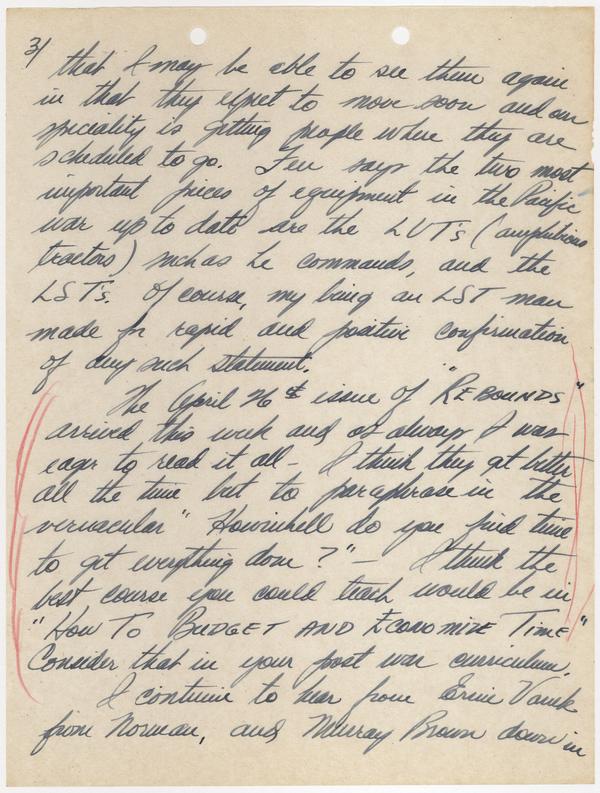 3/
that I may be able to see them again
in that they expect to move soon and our
speciality is getting people where they are
scheduled to go. Feu says the two most
important pieces of equipment in the Pacific
war up to date are the LVT's (amphibious
tractors) such as he commands, and the
LST's. Of course, my being an LST man
made for rapid and positive confirmation
of any such statement.
The April 26th issue of "REBOUNDS"
arrived this week and as always I was
eager to read it all - I think they get better
all the time but to paraphrase in the
vernacular "Howinhell do you find time
to get everything done?" - I think the
best course you could teach would be in
"HOW TO BUDGET AND ECONOMIZE TIME"
Consider that in your post war curriculum.
I continue to hear from Ernie Vanek
from Norman, and Murray Brown down in